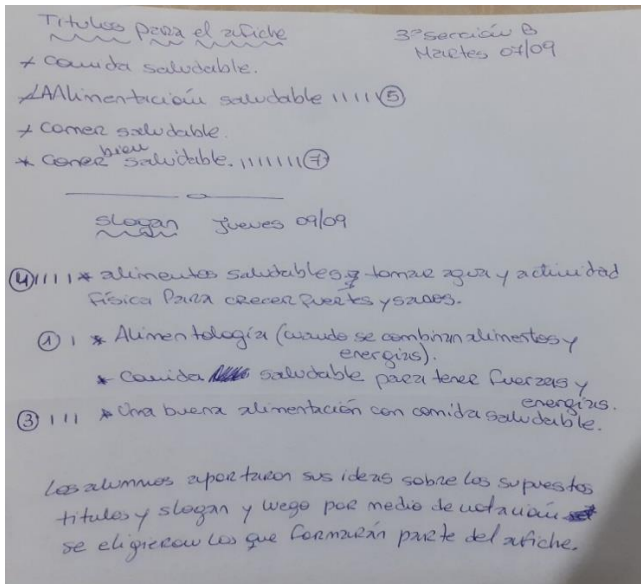 Titulos para el afiche
3º sección B
Martes 07/09
* Comida saludable.
* Alimentación saludable IIIII ⑤
* Comer saludable.
* Comer bien saludable. IIIIIII ⑦
Slogan Jueves 09/09
④ IIII * alimentos saludables, tomar agua y actividad
física Para crecer fuertes y sanos.
① I * Alimentología (cuando se combinan alimentos y
energías).
* Comida saludable para tener fuerzas y
energías.
③ III * Una buena alimentación con comida saludable.
Los alumnos aportaron sus ideas sobre los supuestos
titulos y slogan y luego por medio de votación
se eligieron los que formarán parte del afiche.